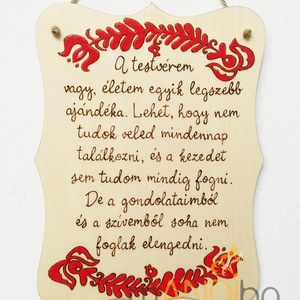 A testvérem
vagy, életem egyik legszebb
ajándéka. Lehet, hogy nem
tudok veled mindennap
találkozni, és a kezedet
sem tudom mindig fogni.
De a gondolataimból
és a szívemből soha nem
foglak elengedni.